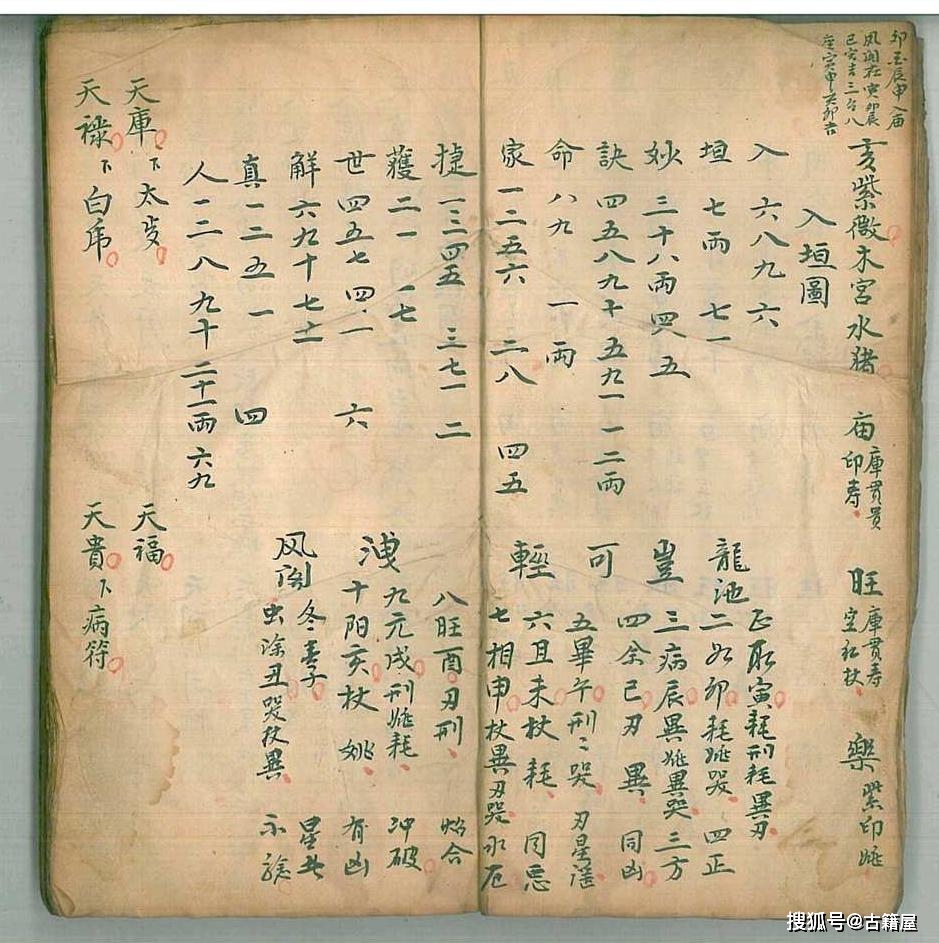 卯丑辰申入庙
凤阁在寅卯辰
巳寅吉三台八
座寅申亥卯吉
亥紫微木宫水猪
庙 庫贯贵
印寿
旺 庫贯寿
空红杖
樂 紫印姚
入垣圖
入 六八九六
垣 七兩 七二十
妙 三十八兩四 五
訣 四五八九十五九一一二兩
命 八九 一兩
家 一二五六 二八 四五
捷 一三四五 三七一 二
獲 二一 一七
世 四五七四一 六
解 六九十七十一
真 一二五一 四
人 一二八九十 二十一兩六九
龍池
豈
可
輕
洩
凤阁
正取寅耗刑耗異刃
二如卯耗姚哭 四正
三病辰異姚異哭 三方
四余巳刃異 同凶
五畢午刑刑哭 刃星
六且未杖耗 同恶
七相申杖異刃哭 永厄
八旺酉刃刑 焰合
九元戌刑姚耗 冲破
十阳亥杖姚 有凶
冬辜子 星共
虫涂丑哭杖異 示
天庫下太岁
天禄下白虎
天福
天貴下病符
搜狐号@古籍屋